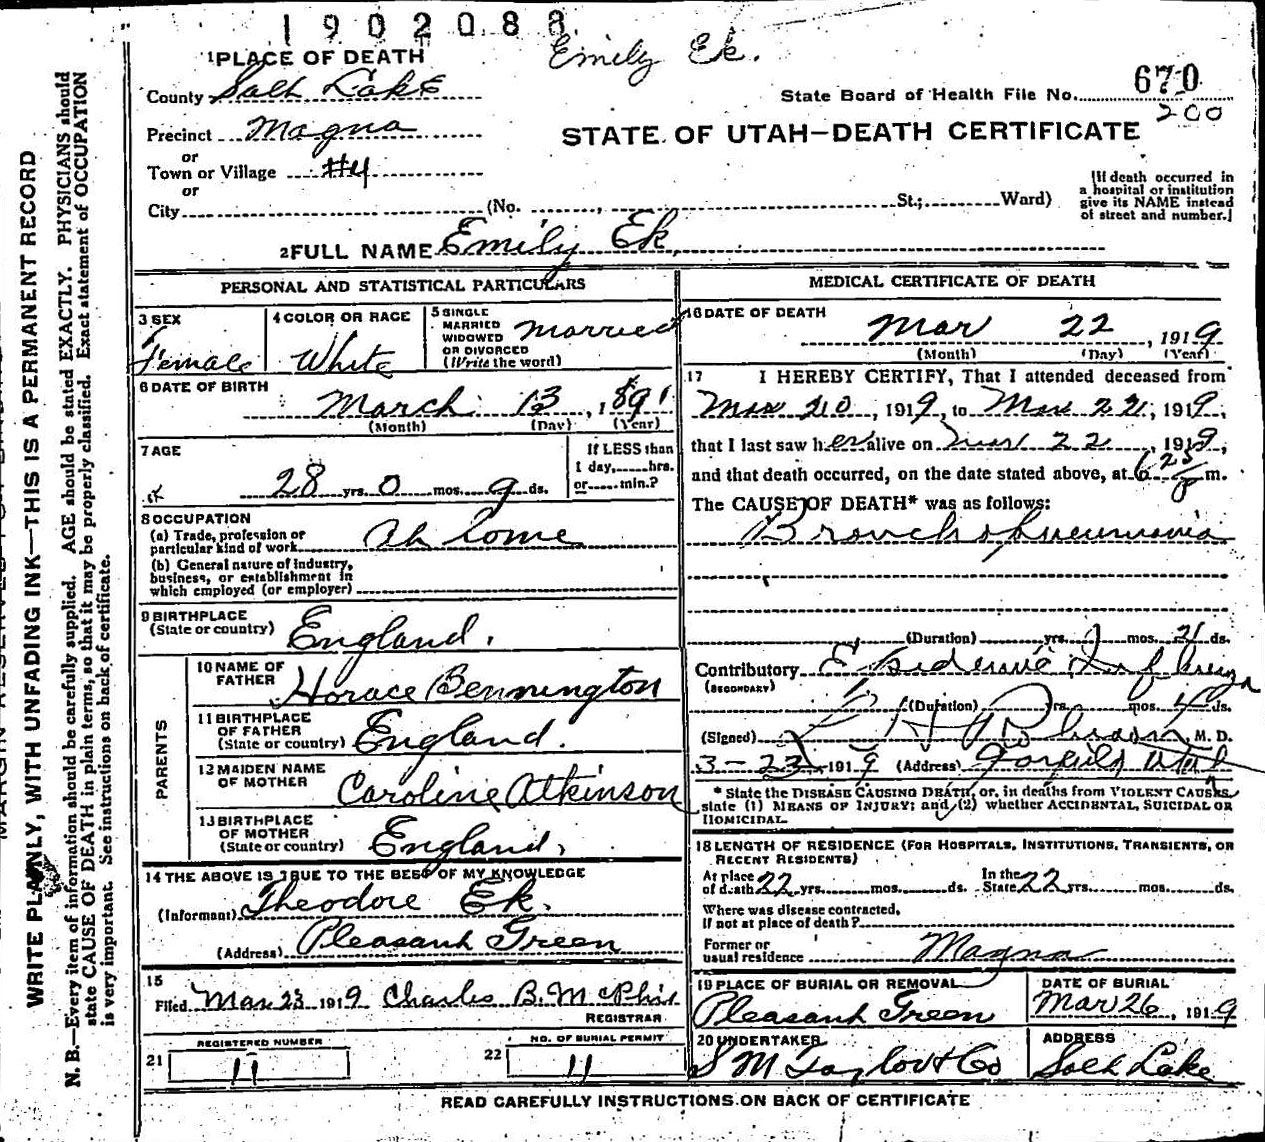 1902088
Emily Ek.
1 PLACE OF DEATH
County Salt Lake
State Board of Health File No. 670
200
Precinct Magna
STATE OF UTAH—DEATH CERTIFICATE
or
Town or Village #4
or
City (No. , St.; Ward)
[If death occurred in
a hospital or institution
give its NAME instead
of street and number.]
2 FULL NAME Emily Ek
PERSONAL AND STATISTICAL PARTICULARS
3 SEX
Female
4 COLOR OR RACE
White
5 SINGLE
MARRIED
WIDOWED
OR DIVORCED
(Write the word)
Married
6 DATE OF BIRTH
March 13, 1891
(Month) (Day) (Year)
7 AGE
28 yrs. 0 mos. 9 ds.
If LESS than
1 day, hrs.
or min.?
8 OCCUPATION
(a) Trade, profession or
particular kind of work At Home
(b) General nature of Industry,
business, or establishment in
which employed (or employer)
9 BIRTHPLACE
(State or country) England.
PARENTS
10 NAME OF
FATHER Horace Bennington
11 BIRTHPLACE
OF FATHER
(State or country) England.
12 MAIDEN NAME
OF MOTHER Caroline Atkinson
13 BIRTHPLACE
OF MOTHER
(State or country) England,
14 THE ABOVE IS TRUE TO THE BEST OF MY KNOWLEDGE
(Informant) Theodore Ek.
(Address) Pleasant Green
15
Filed Mar 23 1919 Charles B. McPhie
REGISTRAR
21 REGISTERED NUMBER
11
22 NO. OF BURIAL PERMIT
11
MEDICAL CERTIFICATE OF DEATH
16 DATE OF DEATH
Mar 22, 1919
(Month) (Day) (Year)
17 I HEREBY CERTIFY, That I attended deceased from
Mar, 1919, to Mar 22, 1919,
that I last saw her alive on Mar 22, 1919,
and that death occurred, on the date stated above, at 6 m.
The CAUSE OF DEATH* was as follows:
Broncho pneumonia
(Duration) yrs. mos. 21 ds.
Contributory Epidemic Influenza
(SECONDARY)
(Duration) yrs. mos. 4 ds.
(Signed) M. D.
3-23, 1919 (Address) Garfield Utah
* State the DISEASE CAUSING DEATH, or, in deaths from VIOLENT CAUSES,
state (1) MEANS OF INJURY; and (2) whether ACCIDENTAL, SUICIDAL OR
HOMICIDAL.
18 LENGTH OF RESIDENCE (FOR HOSPITALS, INSTITUTIONS, TRANSIENTS, OR
RECENT RESIDENTS)
At place
of death 22 yrs. mos. ds.
In the
State 22 yrs. mos. ds.
Where was disease contracted,
If not at place of death?
Former or
usual residence Magna
19 PLACE OF BURIAL OR REMOVAL
Pleasant Green
DATE OF BURIAL
Mar 26, 1919
20 UNDERTAKER
S M Taylor & Co
ADDRESS
Salt Lake
READ CAREFULLY INSTRUCTIONS ON BACK OF CERTIFICATE
WRITE PLAINLY, WITH UNFADING INK—THIS IS A PERMANENT RECORD
N. B.—Every item of information should be carefully supplied. AGE should be stated EXACTLY. PHYSICIANS should
state CAUSE OF DEATH in plain terms, so that it may be properly classified. Exact statement of OCCUPATION
is very important. See instructions on back of certificate.